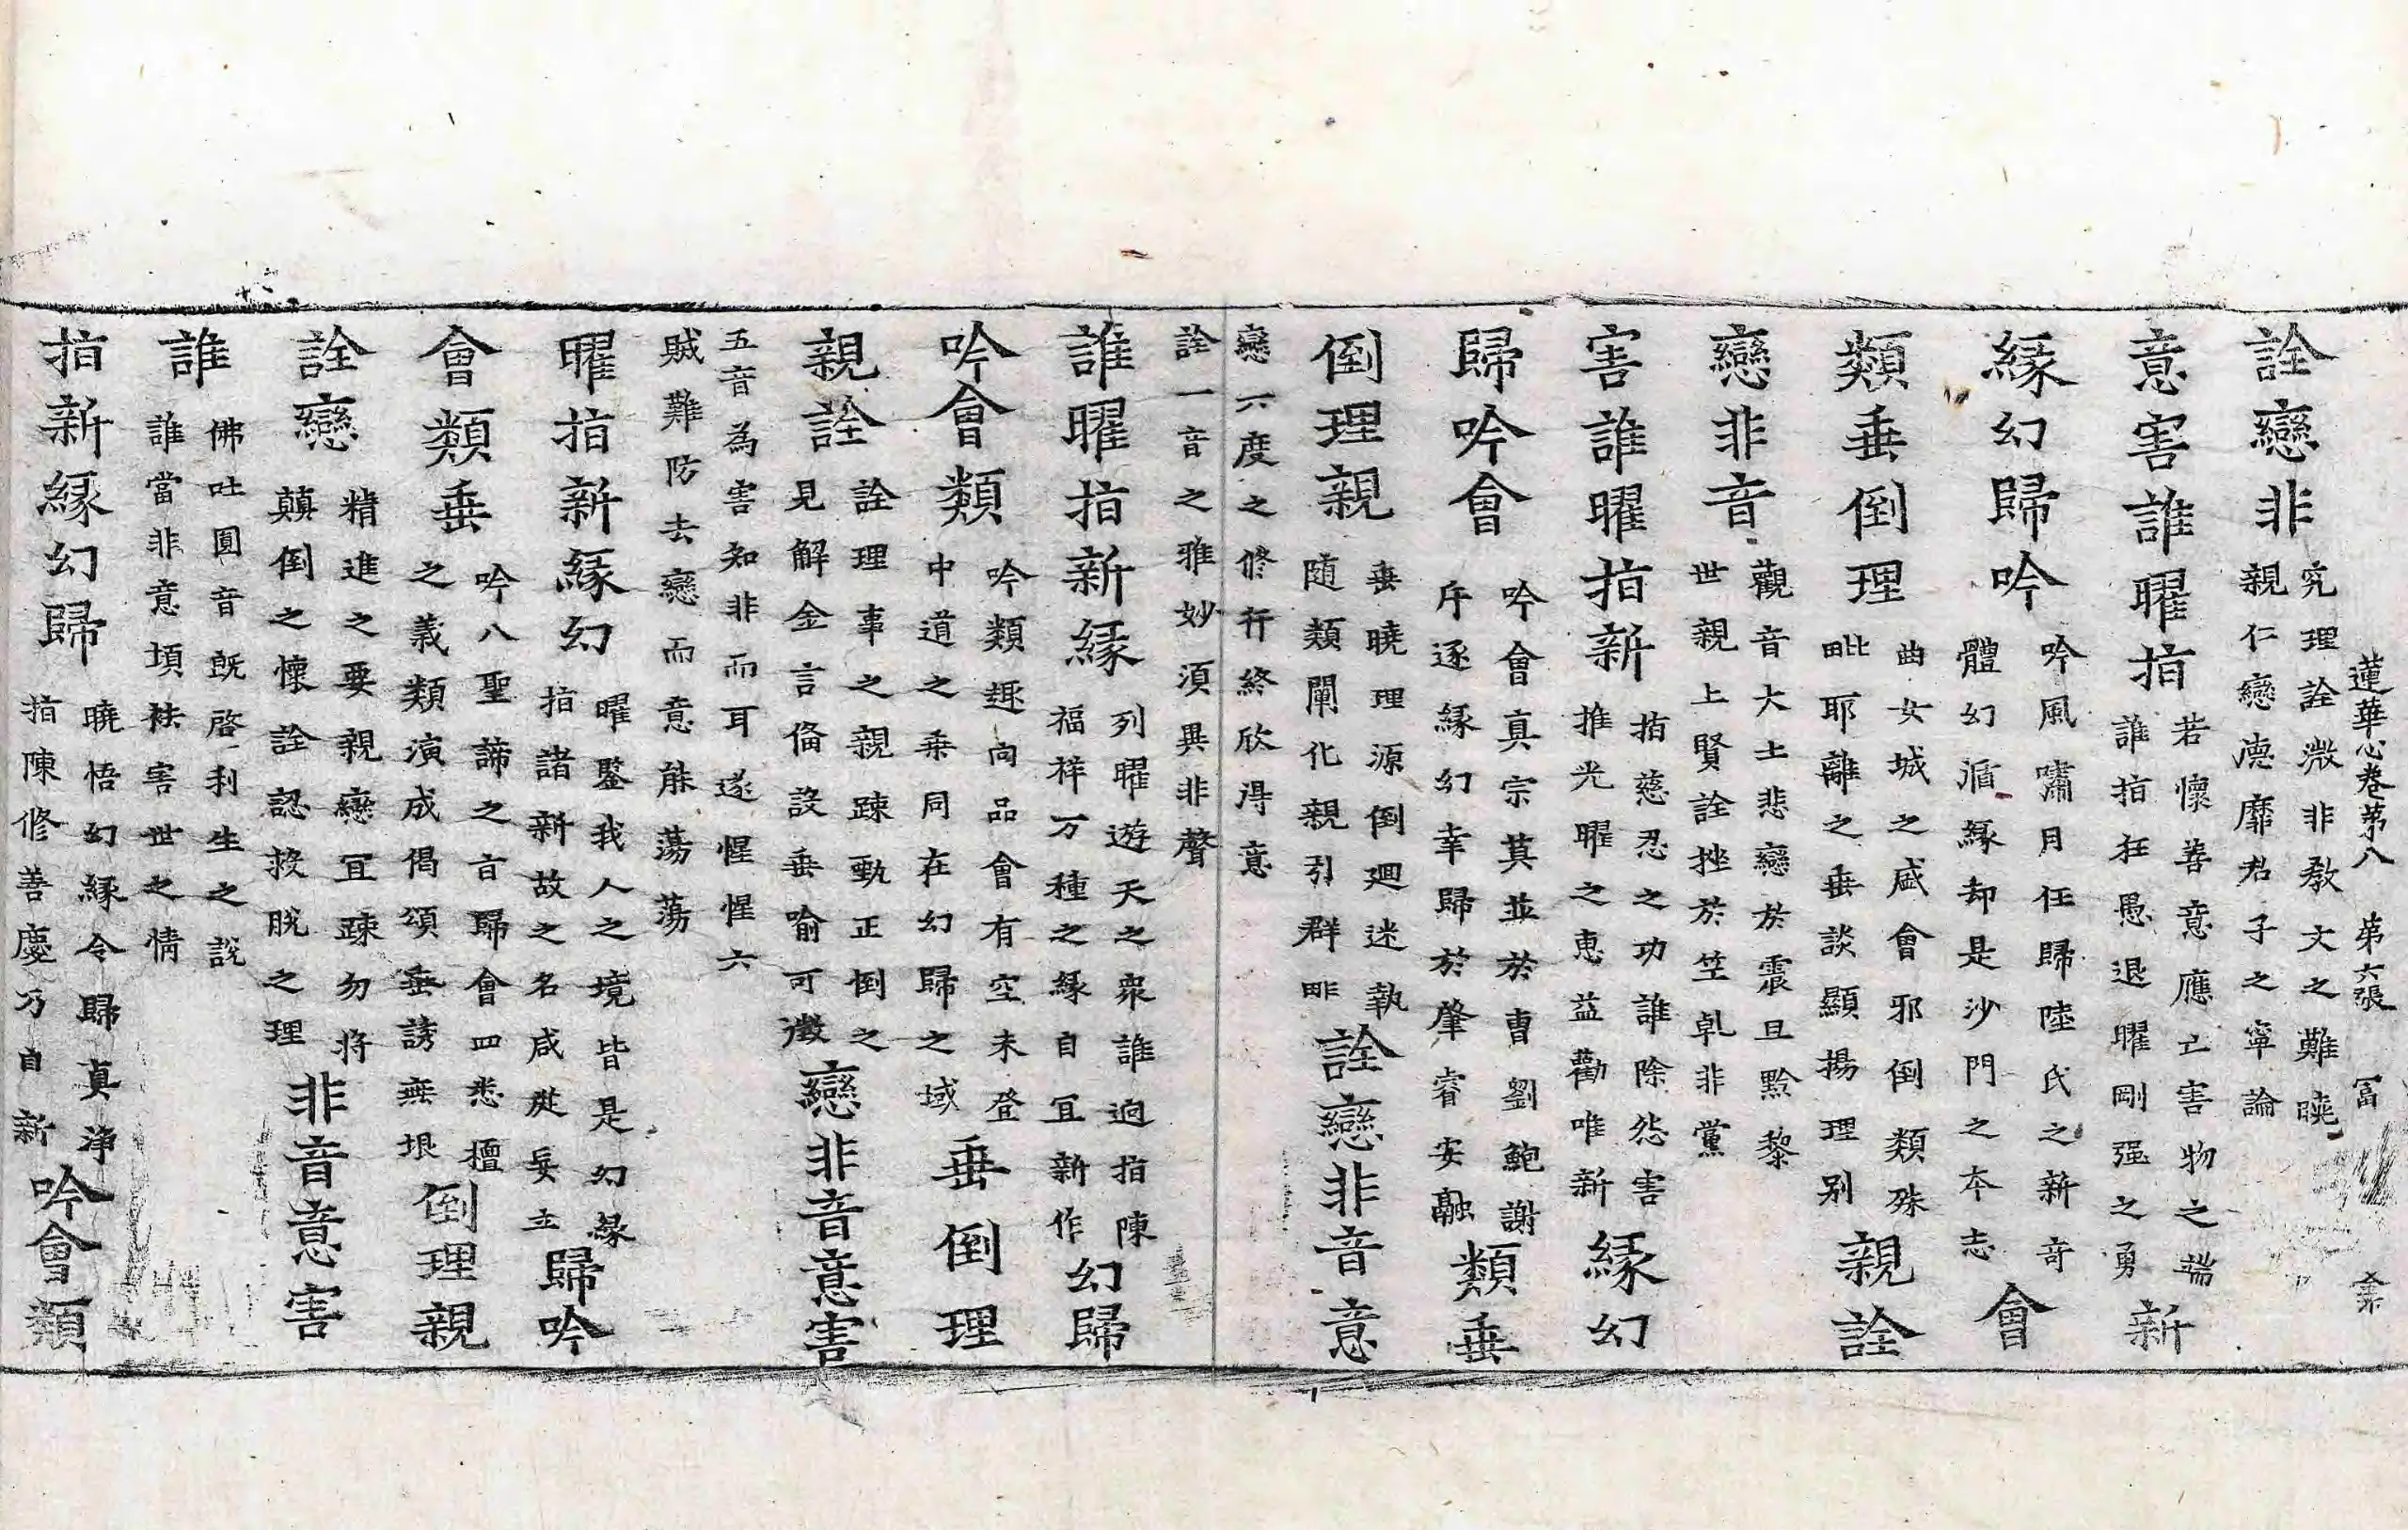 蓮華心卷第八 第六張 冨 㑒
詮戀非
究理詮微非教文之難曉
親仁戀德靡君子之寧論
意害誰曜指
若懷善意應亡害物之端
誰指狂愚退曜剛强之勇
新
緣幻歸吟
吟風嘯月任歸陸氏之新奇
體幻循緣却是沙門之夲志
會
類垂倒理
曲女城之盛會邪倒類殊
毗耶離之垂談顯揚理别
親詮
戀非音
觀音大士悲戀於震旦黔黎
世親上賢詮挫於笁乹非黨
害誰曜指新
指慈忍之功誰除怨害
推光曜之惠益勸唯新
緣幻
歸吟會
吟會真宗莫並於曹劉鮑謝
斥逐緣幻幸歸於肇睿安融
類垂
倒理親
垂曉理源倒迴迷執
随類闡化親引群毗
詮戀非音意
戀六度之修行終欣得意
詮一音之雅妙須異非聲
誰曜指新緣
列曜遊天之衆誰迴指陳
福祥万種之緣自冝新作
幻歸
吟會類
吟類趣向品會有空未登
中道之乗同在幻歸之域
垂倒理
親詮
詮理事之親踈勁正倒之
見解金言俻設垂喻可徵
戀非音意害
五音為害知非而耳遂惺惺六
賊難防去戀而意能蕩蕩
曜指新緣幻
曜鑒我人之境皆是幻緣
指諸新故之名咸從妄立
歸吟
會類垂
吟八聖諦之言歸會四悉檀
之義類演成偈頌垂誘無垠
倒理親
詮戀
精進之要親戀冝踈勿將
顛倒之懷詮認捄脫之理
非音意害
誰
佛吐圓音旣啓利生之說
誰當非意須袪害世之情
指新緣幻歸
曉悟幻緣令歸真淨
指陳修善慶乃自新
吟會類